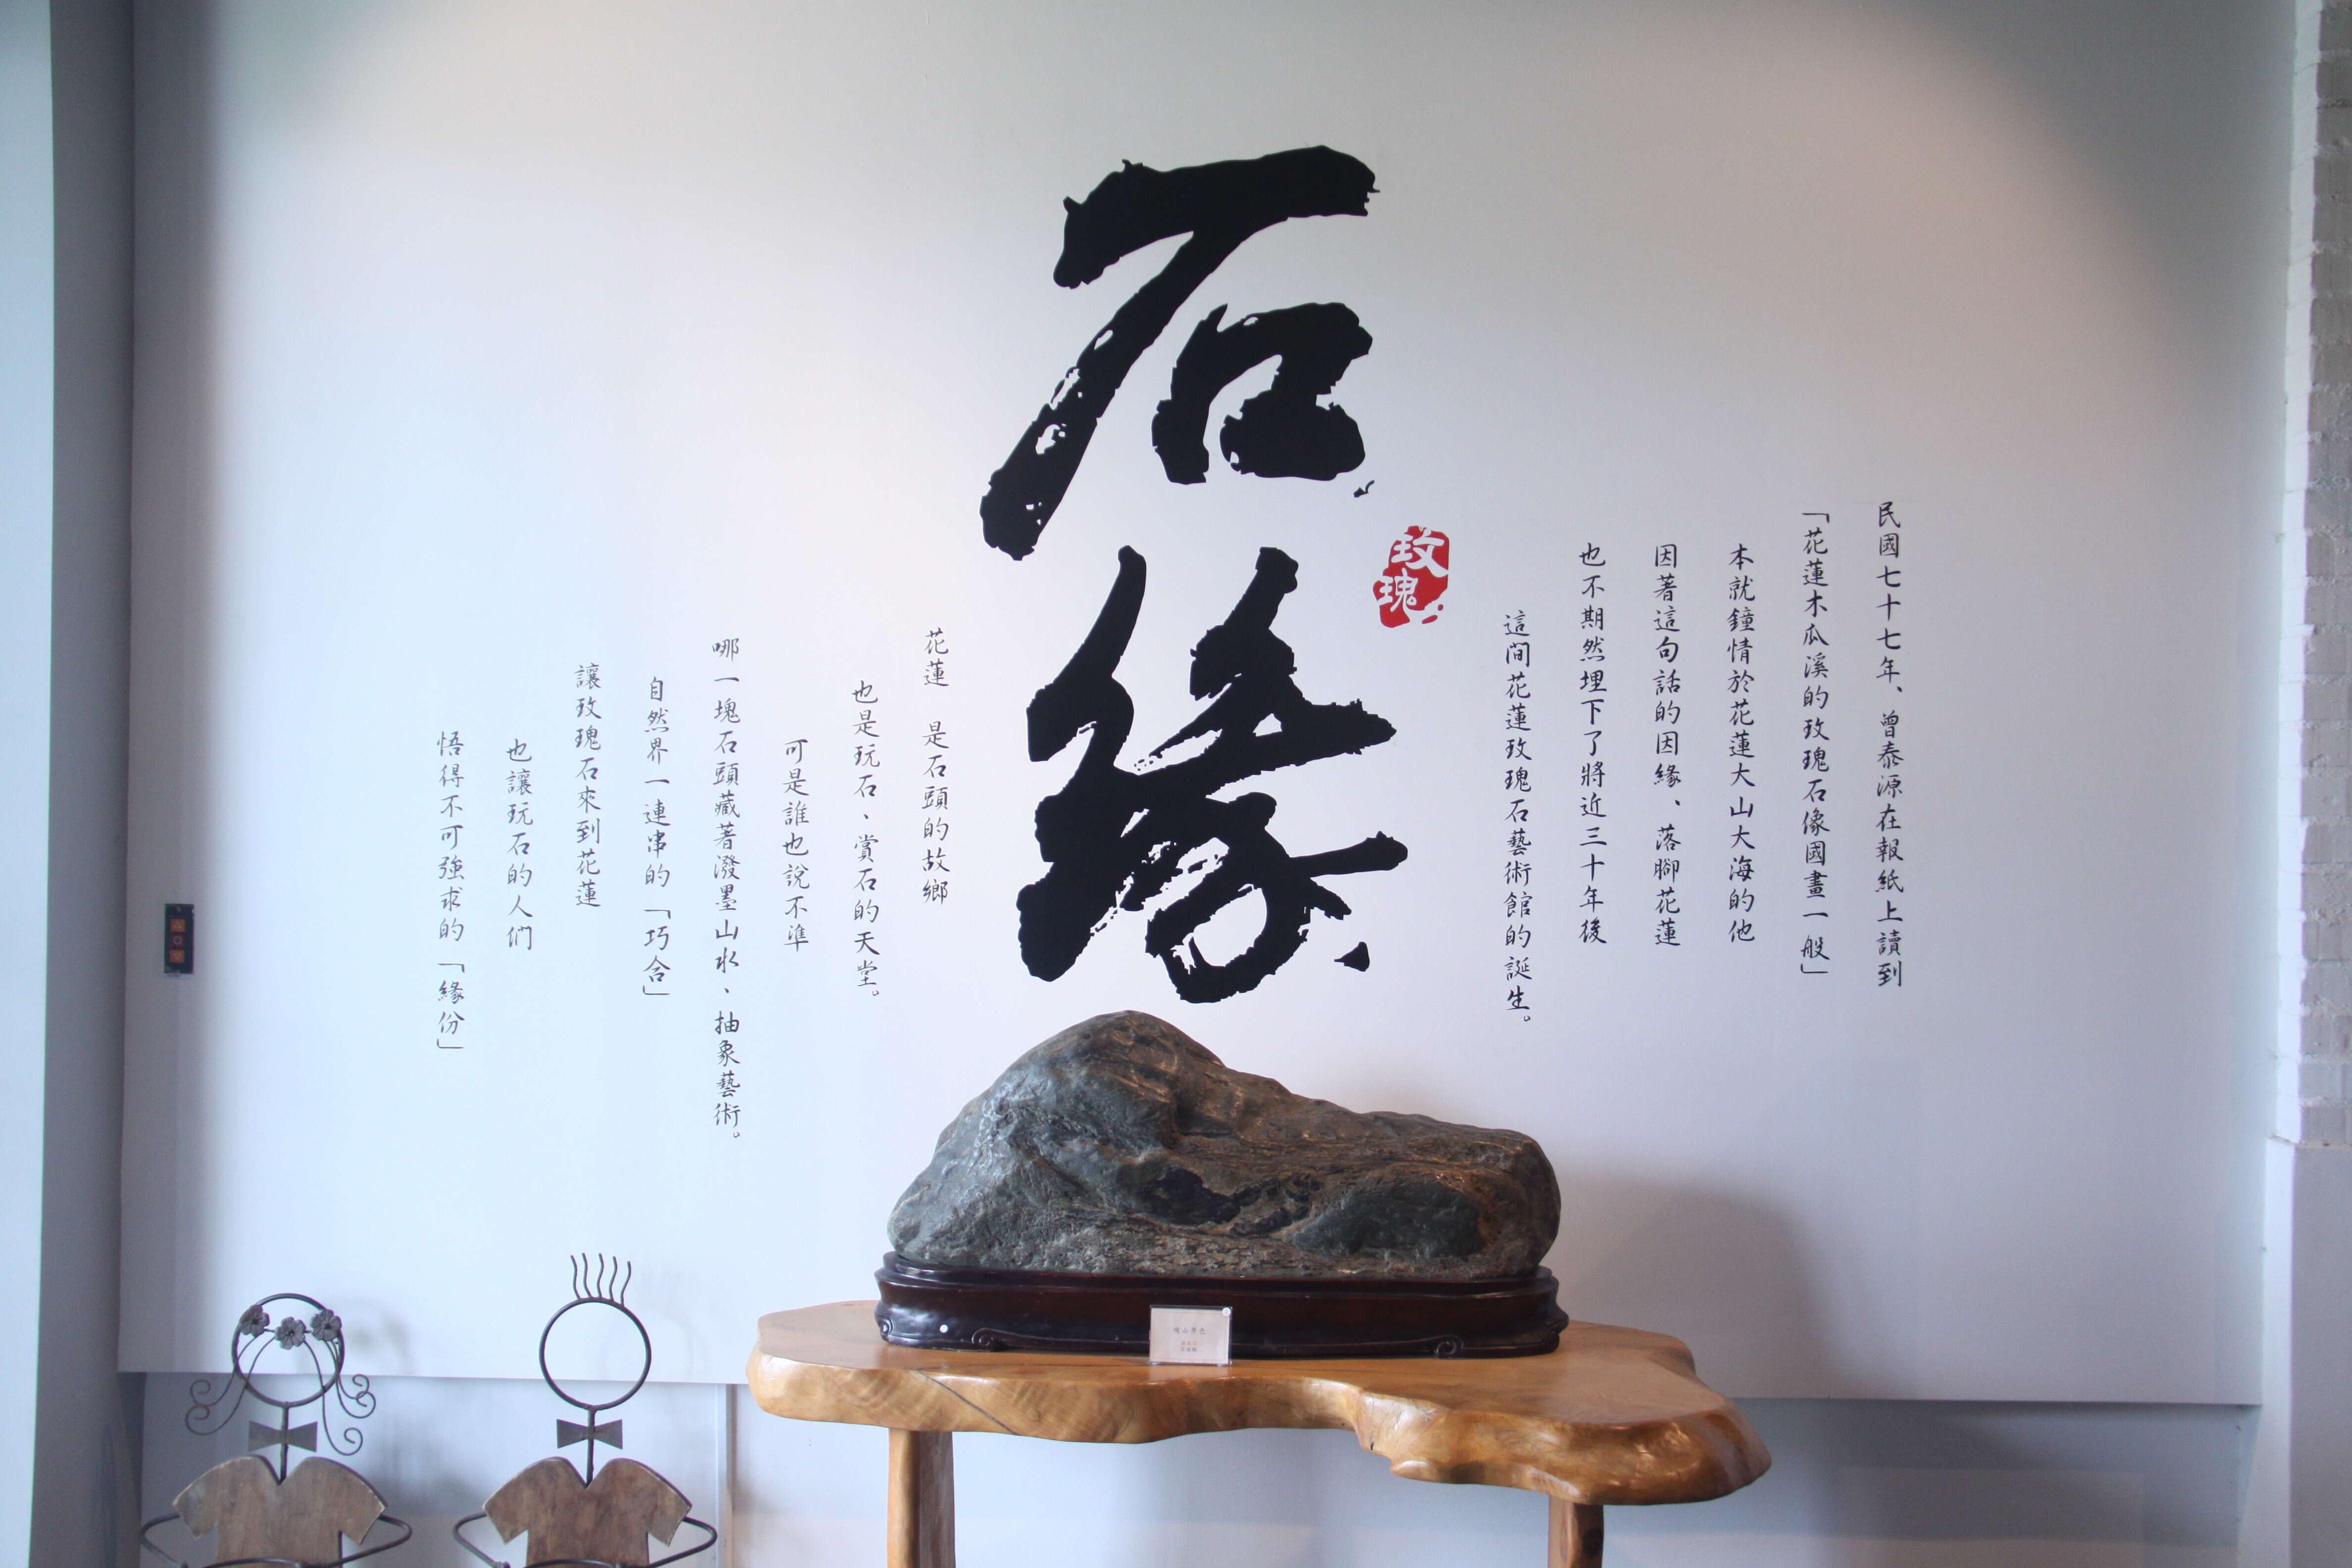 民國七十七年、曾泰源在報紙上讀到
「花蓮木瓜溪的玫瑰石像國畫一般」
本就鐘情於花蓮大山大海的他
因著這句話的因緣、落腳花蓮
也不期然埋下了將近三十年後
這間花蓮玫瑰石藝術館的誕生。
石緣
玫瑰
花蓮 是石頭的故鄉
也是玩石、賞石的天堂。
可是誰也說不準
哪一塊石頭藏著潑墨山水、抽象藝術。
自然界一連串的「巧合」
讓玫瑰石來到花蓮
也讓玩石的人們
悟得不可強求的「緣份」